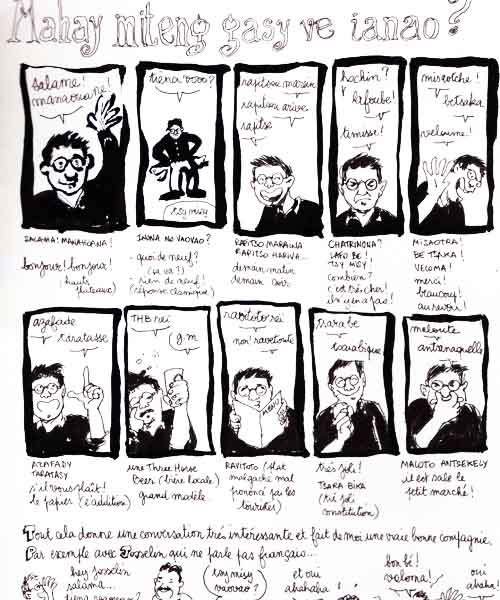 Mahay miteng gasy ve ianao?
salame!
manaouane!
tiena vovo?
tsy misy
rapitsou marein
rapitsou arive
rapitse
hachin?
lafoube!
timisse!
misaotche!
betsaka
veloume!
SALAMA! MANAHOANA!
bonjour! bonjour!
hauts
plateaux)
INONA NO VAOVAO?
quoi de neuf?
(ça va?)
rien de neuf!
(réponse classique)
RAPITSO MARAINA
RAPITSO HARIVA
demain matin
demain soir
CHATRINONA?
LAFO BE!
TSY MISY!
combien?
c'est très cher!
il n'y en a pas!
MISAOTRA!
BE TSAKA!
VELOMA!
merci!
beaucoup!
au revoir!
azafade
taratasse
THB rei
g.m
ravitoto rei
non! ravetoute
tsarabe
tsarabique
meloute
antsenaquelle
AZAFADY
TARATASY
s'il vous plaît!
le papier (l'addition)
une Three Horse
Beer (bière locale)
grand modèle
RAVITOTO (plat
malgache mal
prononcé par les
touristes)
très joli!
TSARA BIKA
(très joli
constitution)
MALOTO ANTSEKELY
il est sale le
petit marché!
Tout cela donne une conversation très intéressante et fait de moi une vraie bonne compagnie.
Par exemple avec Josselin qui ne parle pas français...
hey josselin
salama...
tsy misy
vaoveo?
et oui
ahahaha
bon bé!
veloma!
oui
ahaha!